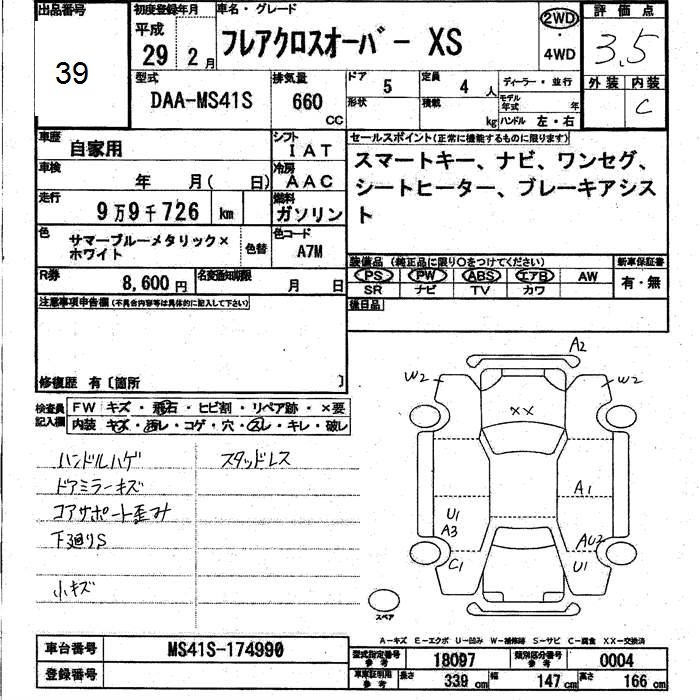 出品番号
39
初度登録年月
平成
29 2月
車名・グレード
フレアクロスオーバー XS
2WD
・
4WD
評価点
3.5
外装 内装
C
型式
DAA-MS41S
排気量
660 CC
ドア 5
形状
定員 4 人
積載 kg
ディーラー・並行
モデル年式 年
ハンドル 左・右
車歴 自家用
シフト IAT
車検 年 月( 日)
冷房 AAC
走行 9万9千726 km
燃料 ガソリン
色 サマーブルーメタリック×ホワイト
色替
色コード A7M
R券 8,600円
名変通知期限 月 日
セールスポイント(正常に機能するものに限ります)
スマートキー、ナビ、ワンセグ、
シートヒーター、ブレーキアシス
ト
装備品 (純正品に限り○をつけてください)
新車保証書
PS PW ABS エアB AW
SR ナビ TV カワ
有・無
後日品
注意事項申告欄(不具合内容等は具体的に記入して下さい)
修復歴 有〔箇所 〕
検査員記入欄
FW キズ・飛石・ヒビ割・リペア跡・×要
内装 キズ・汚レ・コゲ・穴・スレ・キレ・破レ
ハンドルハゲ スタッドレス
ドアミラーキズ
コアサポート歪み
下廻りS
小キズ
A2
W2 W2
XX
A1
U1
A3
AU2
C1 U1
スペア
A-キズ E-エクボ U-凹み W-補修跡 S-サビ C-腐食 XX-交換済
車台番号 MS41S-174990
登録番号
型式指定番号 参考 18097
類別区分番号 参考 0004
車車証明用 参考
長さ 339 cm
幅 147 cm
高さ 166 cm